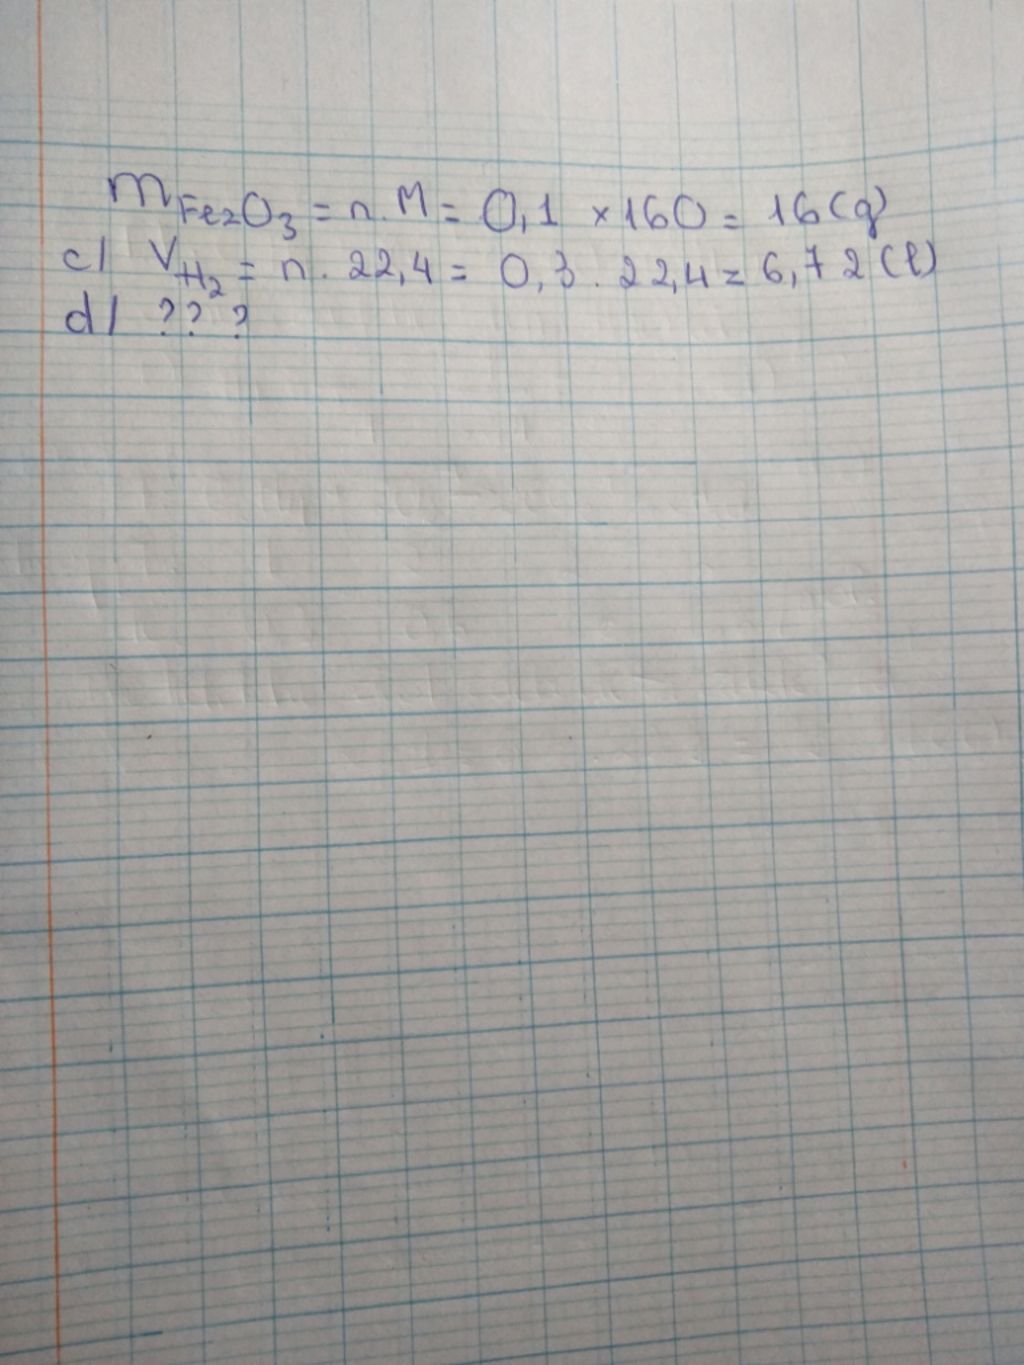 mFe₂O₃ = n.M = 0,1 ×160 = 16(g)
c/ VH₂ = n. 22,4 = 0,3. 22,4 = 6,72(l)
d/ ???